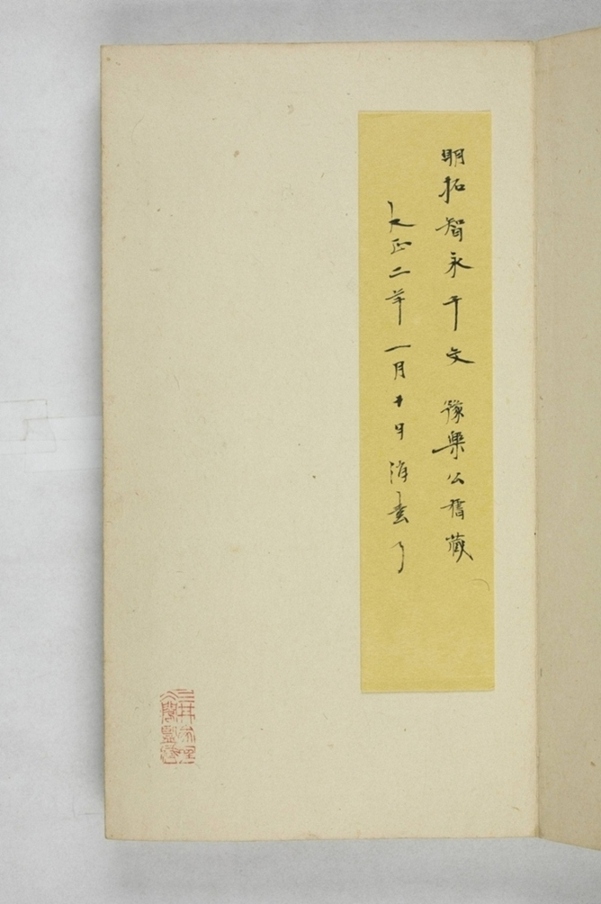 明拓智永千文 豫樂公舊藏
大正二年一月十日